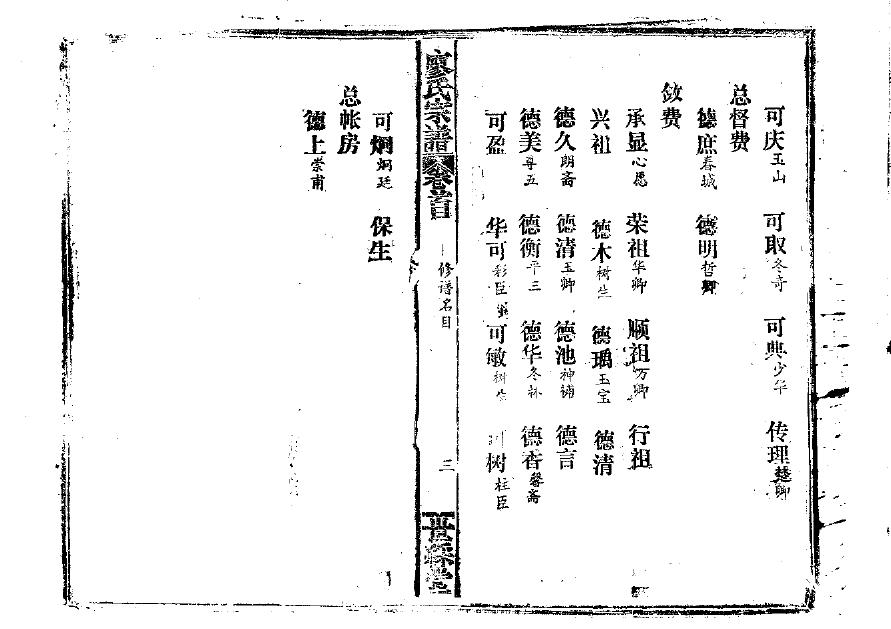 可庆玉山 可取冬奇 可典少华 传理楚卿
总督费
德庶春城 德明哲卿
敛费
承显心愿 荣祖华卿 顺祖万卿 行祖
兴祖 德木树生 德瑀玉宝 德清
德久朗斋 德清玉卿 德池神補 德言
德美尊五 德衡平三 德华冬林 德香馨斋
可盈 华可彩臣 可敏树 树柱臣
廖氏宗谱 卷首 修谱名目 三
可炯炯廷 保生
总帐房
德上崇甫